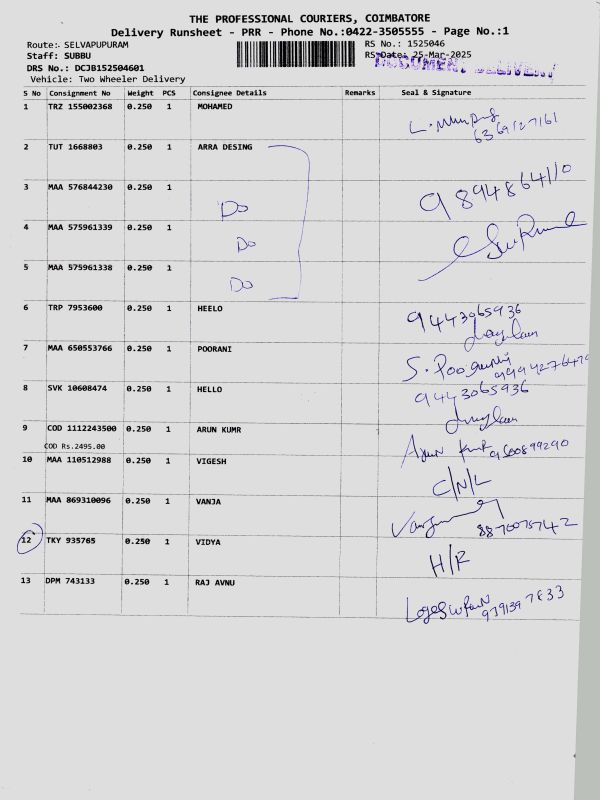 THE PROFESSIONAL COURIERS, COIMBATORE
Delivery Runsheet - PRR - Phone No.:0422-3505555 - Page No.:1
Route:- SELVAPUPURAM
RS No.: 1525046
Staff: SUBBU
RS Date: 25-Mar-2025
DOCUMENT DELIVERY
DRS No.: DCJB152504601
Vehicle: Two Wheeler Delivery
S No Consignment No Weight PCS Consignee Details Remarks Seal & Signature
1 TRZ 155002368 0.250 1 MOHAMED
6369127161
2 TUT 1668803 0.250 1 ARRA DESING
3 MAA 576844230 0.250 1
Do 9894864110
4 MAA 575961339 0.250 1
Do
5 MAA 575961338 0.250 1
Do
6 TRP 7953600 0.250 1 HEELO
9443065936
7 MAA 650553766 0.250 1 POORANI
8 SVK 10608474 0.250 1 HELLO
9443065936
9 COD 1112243500 0.250 1 ARUN KUMR
COD Rs.2495.00
Arun Kumr 9600899290
10 MAA 110512988 0.250 1 VIGESH
C/N/L
11 MAA 869310096 0.250 1 VANJA
8870075742
12 TKY 935765 0.250 1 VIDYA
H/R
13 DPM 743133 0.250 1 RAJ AVNU